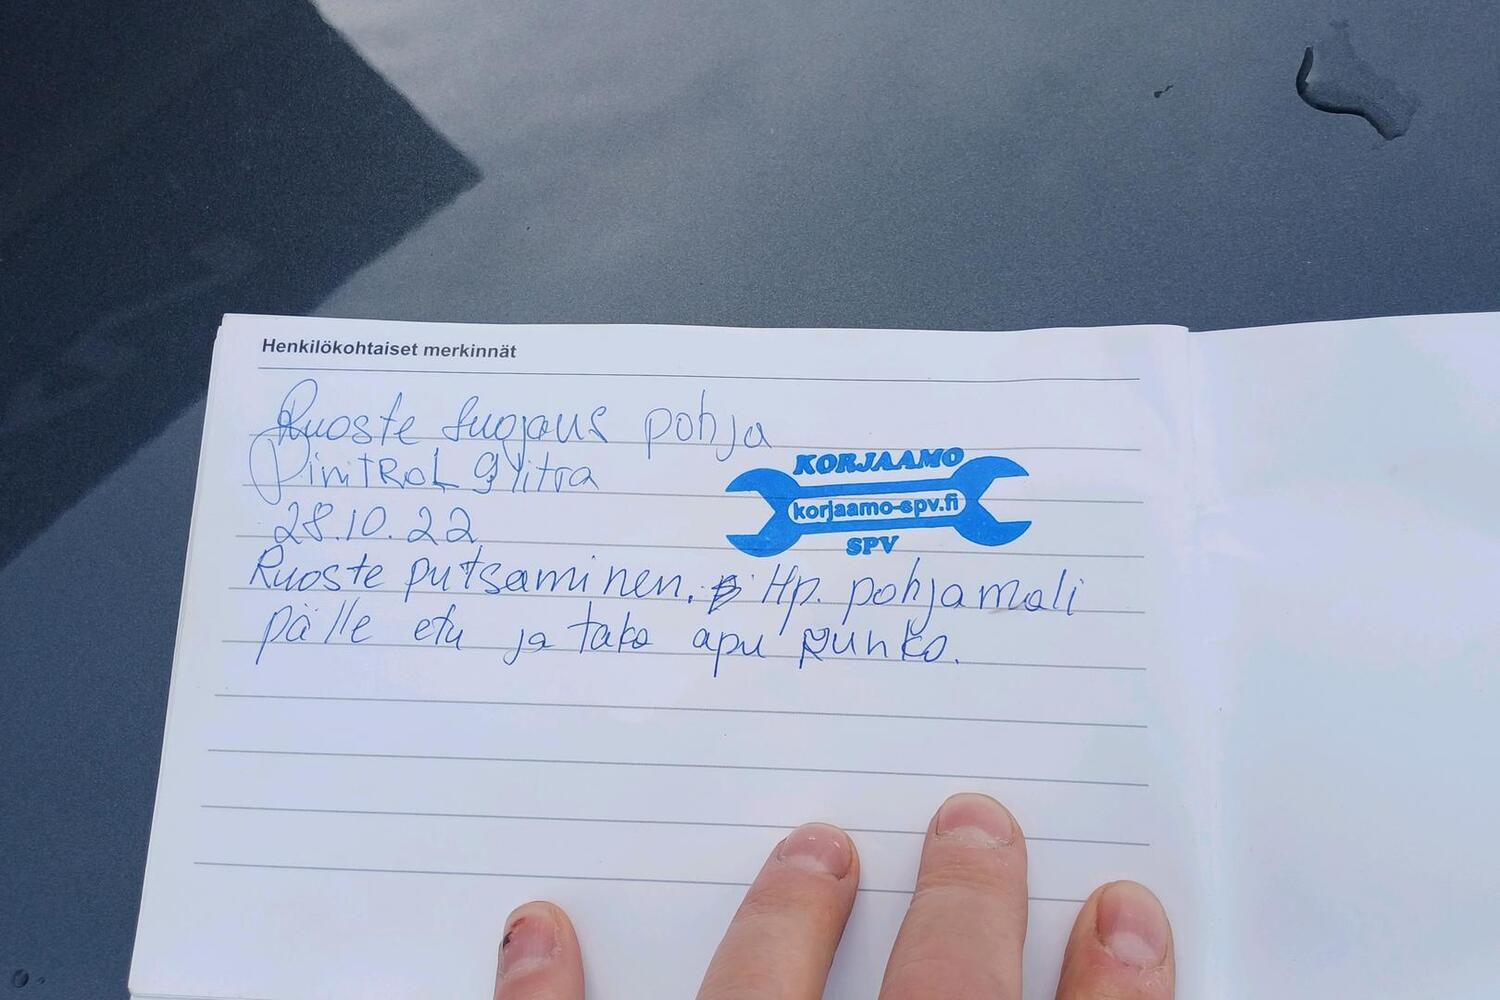 Henkilökohtaiset merkinnät
Ruoste suojaus pohja
DinitRoL 9 litra
28.10.22
KORJAAMO
korjaamo-spv.fi
SPV
Ruoste putsaminen. Hp. pohjamali
pälle etu ja taka apu Runko.